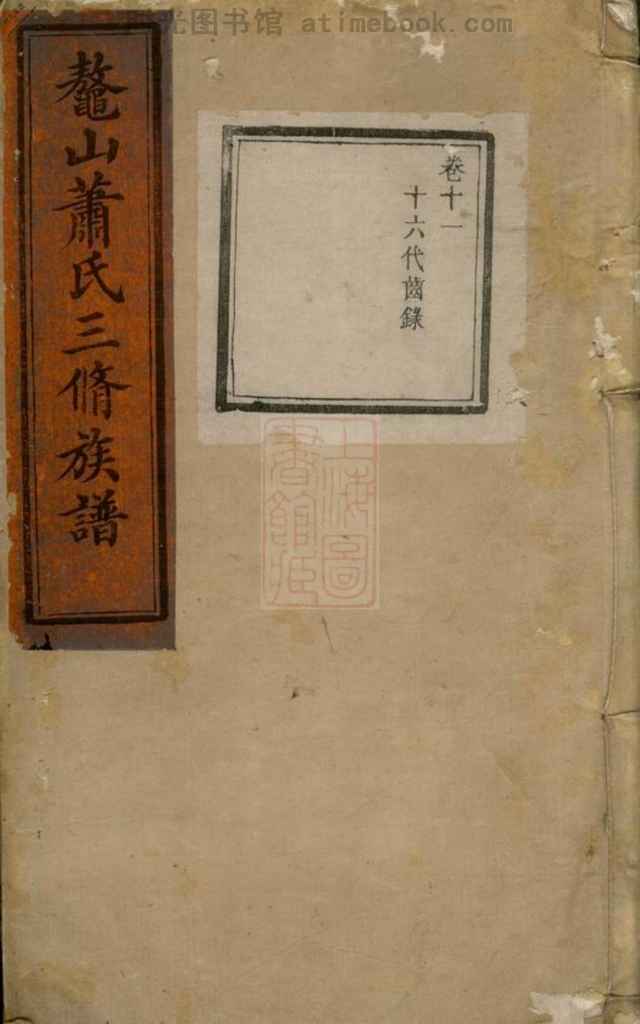 光图书馆 atimebook.com
鼇山蕭氏三脩族譜
卷十一
十六代齒錄
上海圖
書館藏